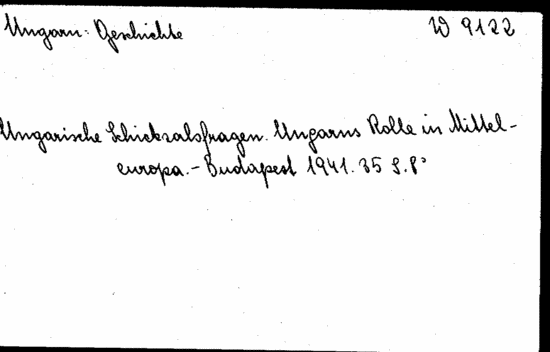 Ungarn: Geschichte W 9122
Ungarische Schicksalsfragen. Ungarns Rolle in Mittel-
europa.- Budapest 1941. 35 S. 8°